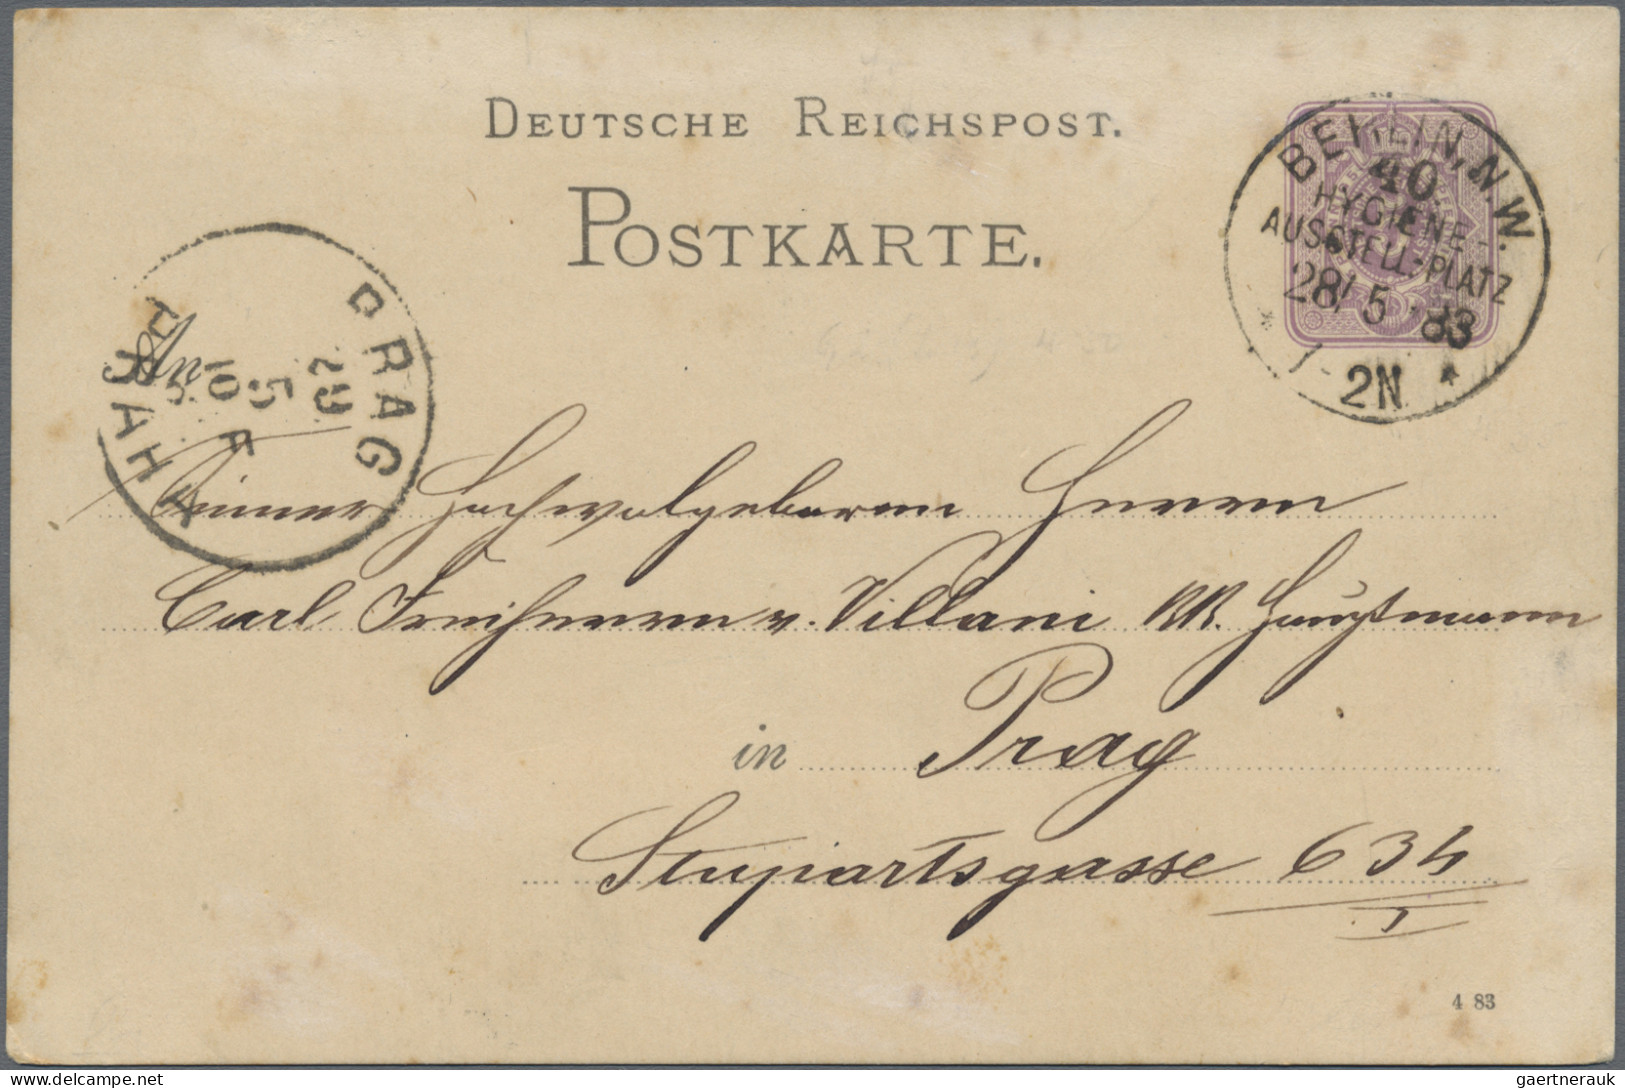 DEUTSCHE REICHSPOST.
POSTKARTE.
BERLIN, N.W.
40.
HYGIENE-
AUSSTELL-PLATZ
28/5 83
1-2N
PRAG
29
5
10 F
PRAHA
An
Seiner Hochwolgeboren Herrn
Carl Freiherrn v. Villani KK. Hauptmann
in Prag
Stupartsgasse 634
I
4 83
gaertnerauk